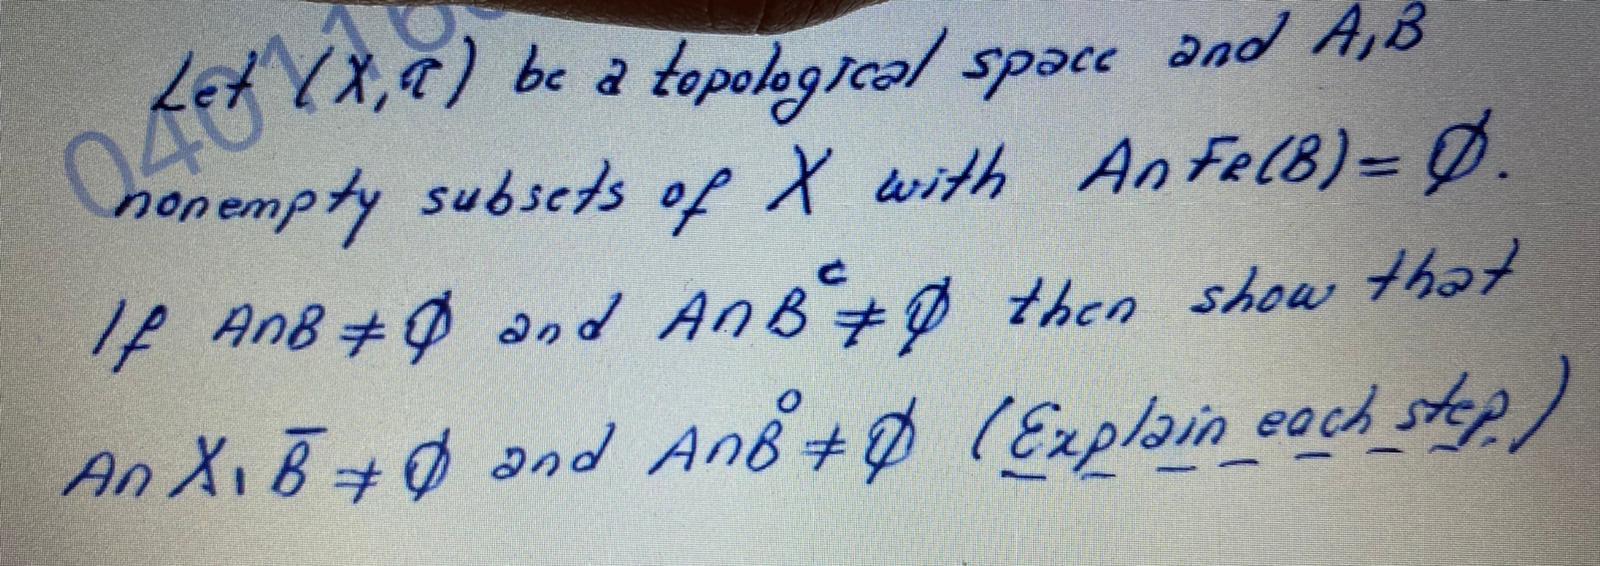 Let (X,τ) be a topological space and A,B
nonempty subsets of X with A∩Fr(B)=∅.
If A∩B≠∅ and A∩Bᶜ≠∅ then show that
A∩X\B̄≠∅ and A∩B̊≠∅ (Explain each step.)